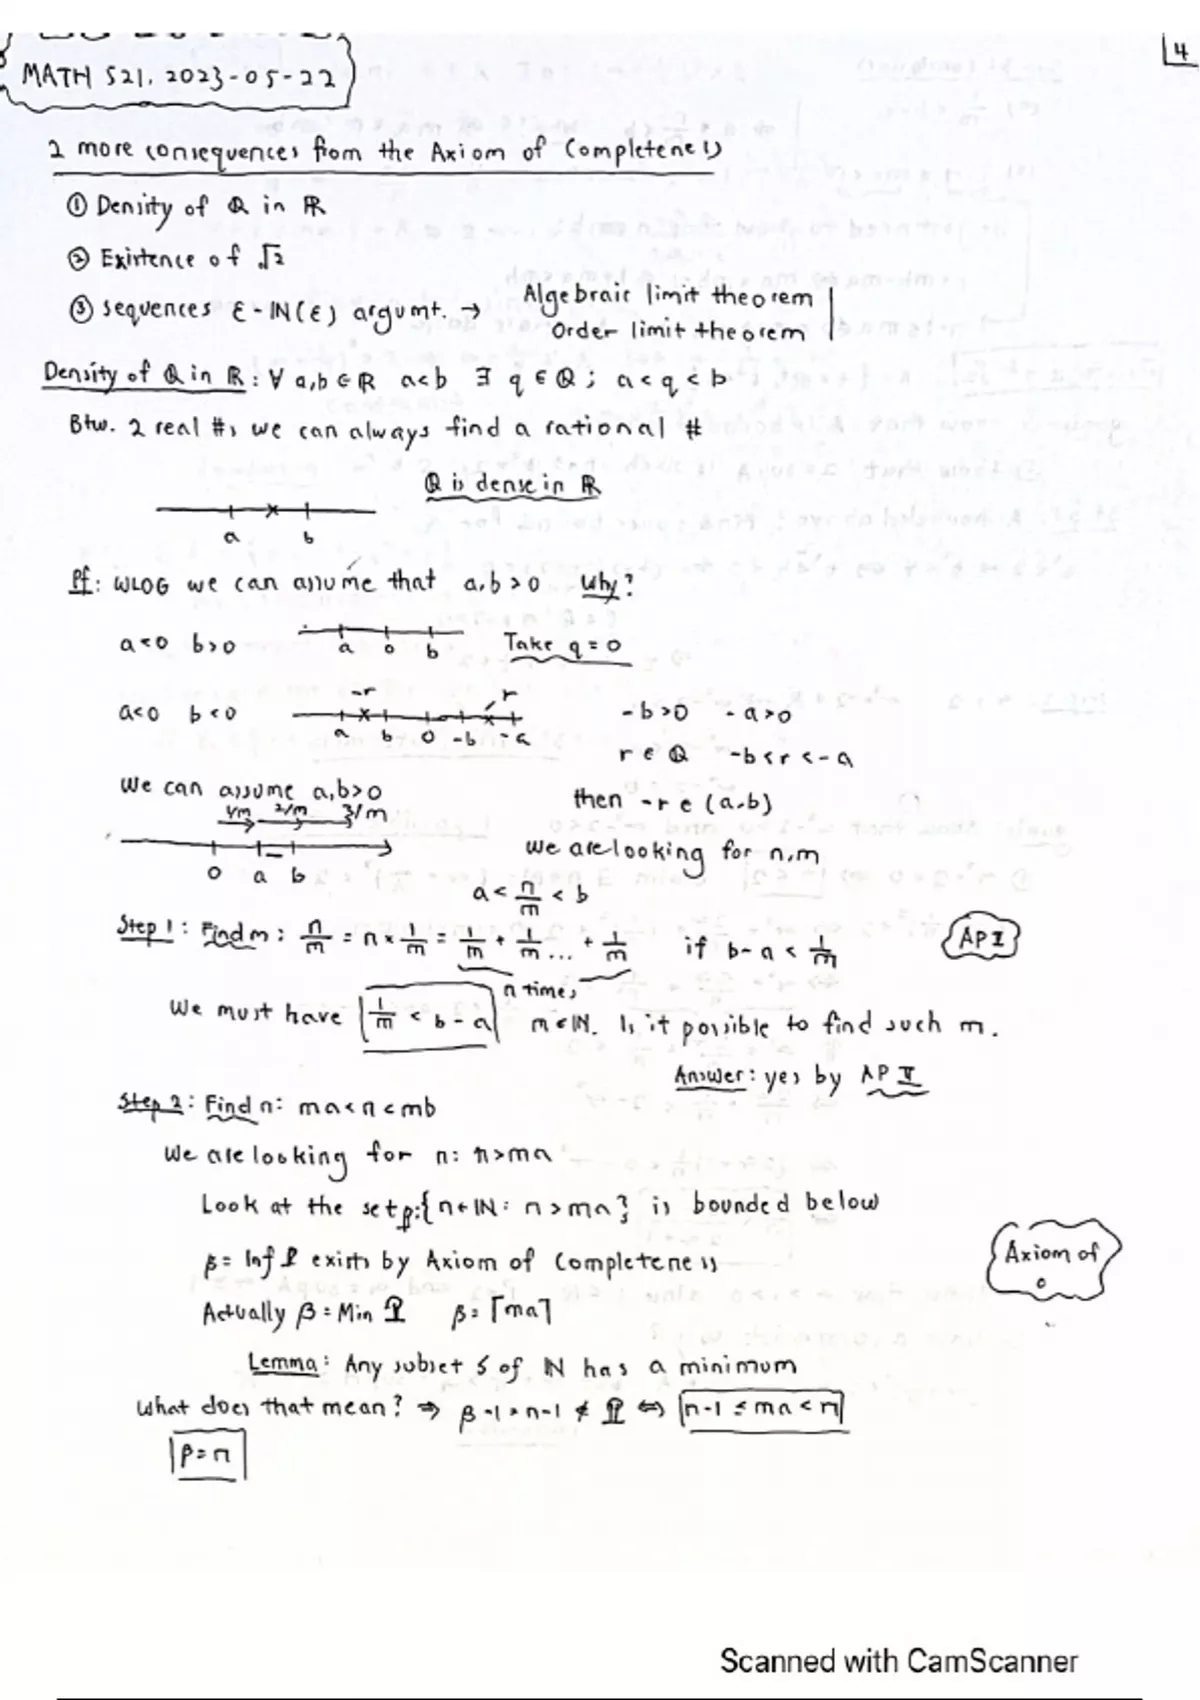 4
MATH 521, 2023-05-22
2 more consequences from the Axiom of Completeness
① Density of ℚ in ℝ
② Existence of √2
③ sequences ε-ℕ(ε) argumt. → Algebraic limit theorem
Order limit theorem
Density of ℚ in ℝ: ∀ a,b ∈ ℝ a<b ∃ q ∈ ℚ; a<q<b
Btw. 2 real #s we can always find a rational #
ℚ is dense in ℝ
a b
Pf: WLOG we can assume that a,b>0 Why?
a<0 b>0 a 0 b Take q=0
-r r
a<0 b<0 a b 0 -b -a -b>0 -a>0
r ∈ ℚ -b<r<-a
We can assume a,b>0 then -r ∈ (a,b)
1/m 2/m 3/m
we are looking for n,m
0 a b
a < n/m < b
Step 1: Find m: n/m = n × 1/m = 1/m + 1/m ... + 1/m if b-a < 1/m AP I
n times
We must have 1/m < b-a m∈ℕ. Is it possible to find such m.
Answer: yes by AP II
Step 2: Find n: ma<n<mb
We are looking for n: n>ma
Look at the set p:{n∈ℕ: n>ma} is bounded below
β= Inf P exists by Axiom of Completeness
Axiom of
o
Actually β=Min P β=⌈ma⌉
Lemma: Any subset S of ℕ has a minimum
What does that mean? ⇒ β-1=n-1 ∉ P ⇔ n-1 ≤ ma < n
β=n
Scanned with CamScanner